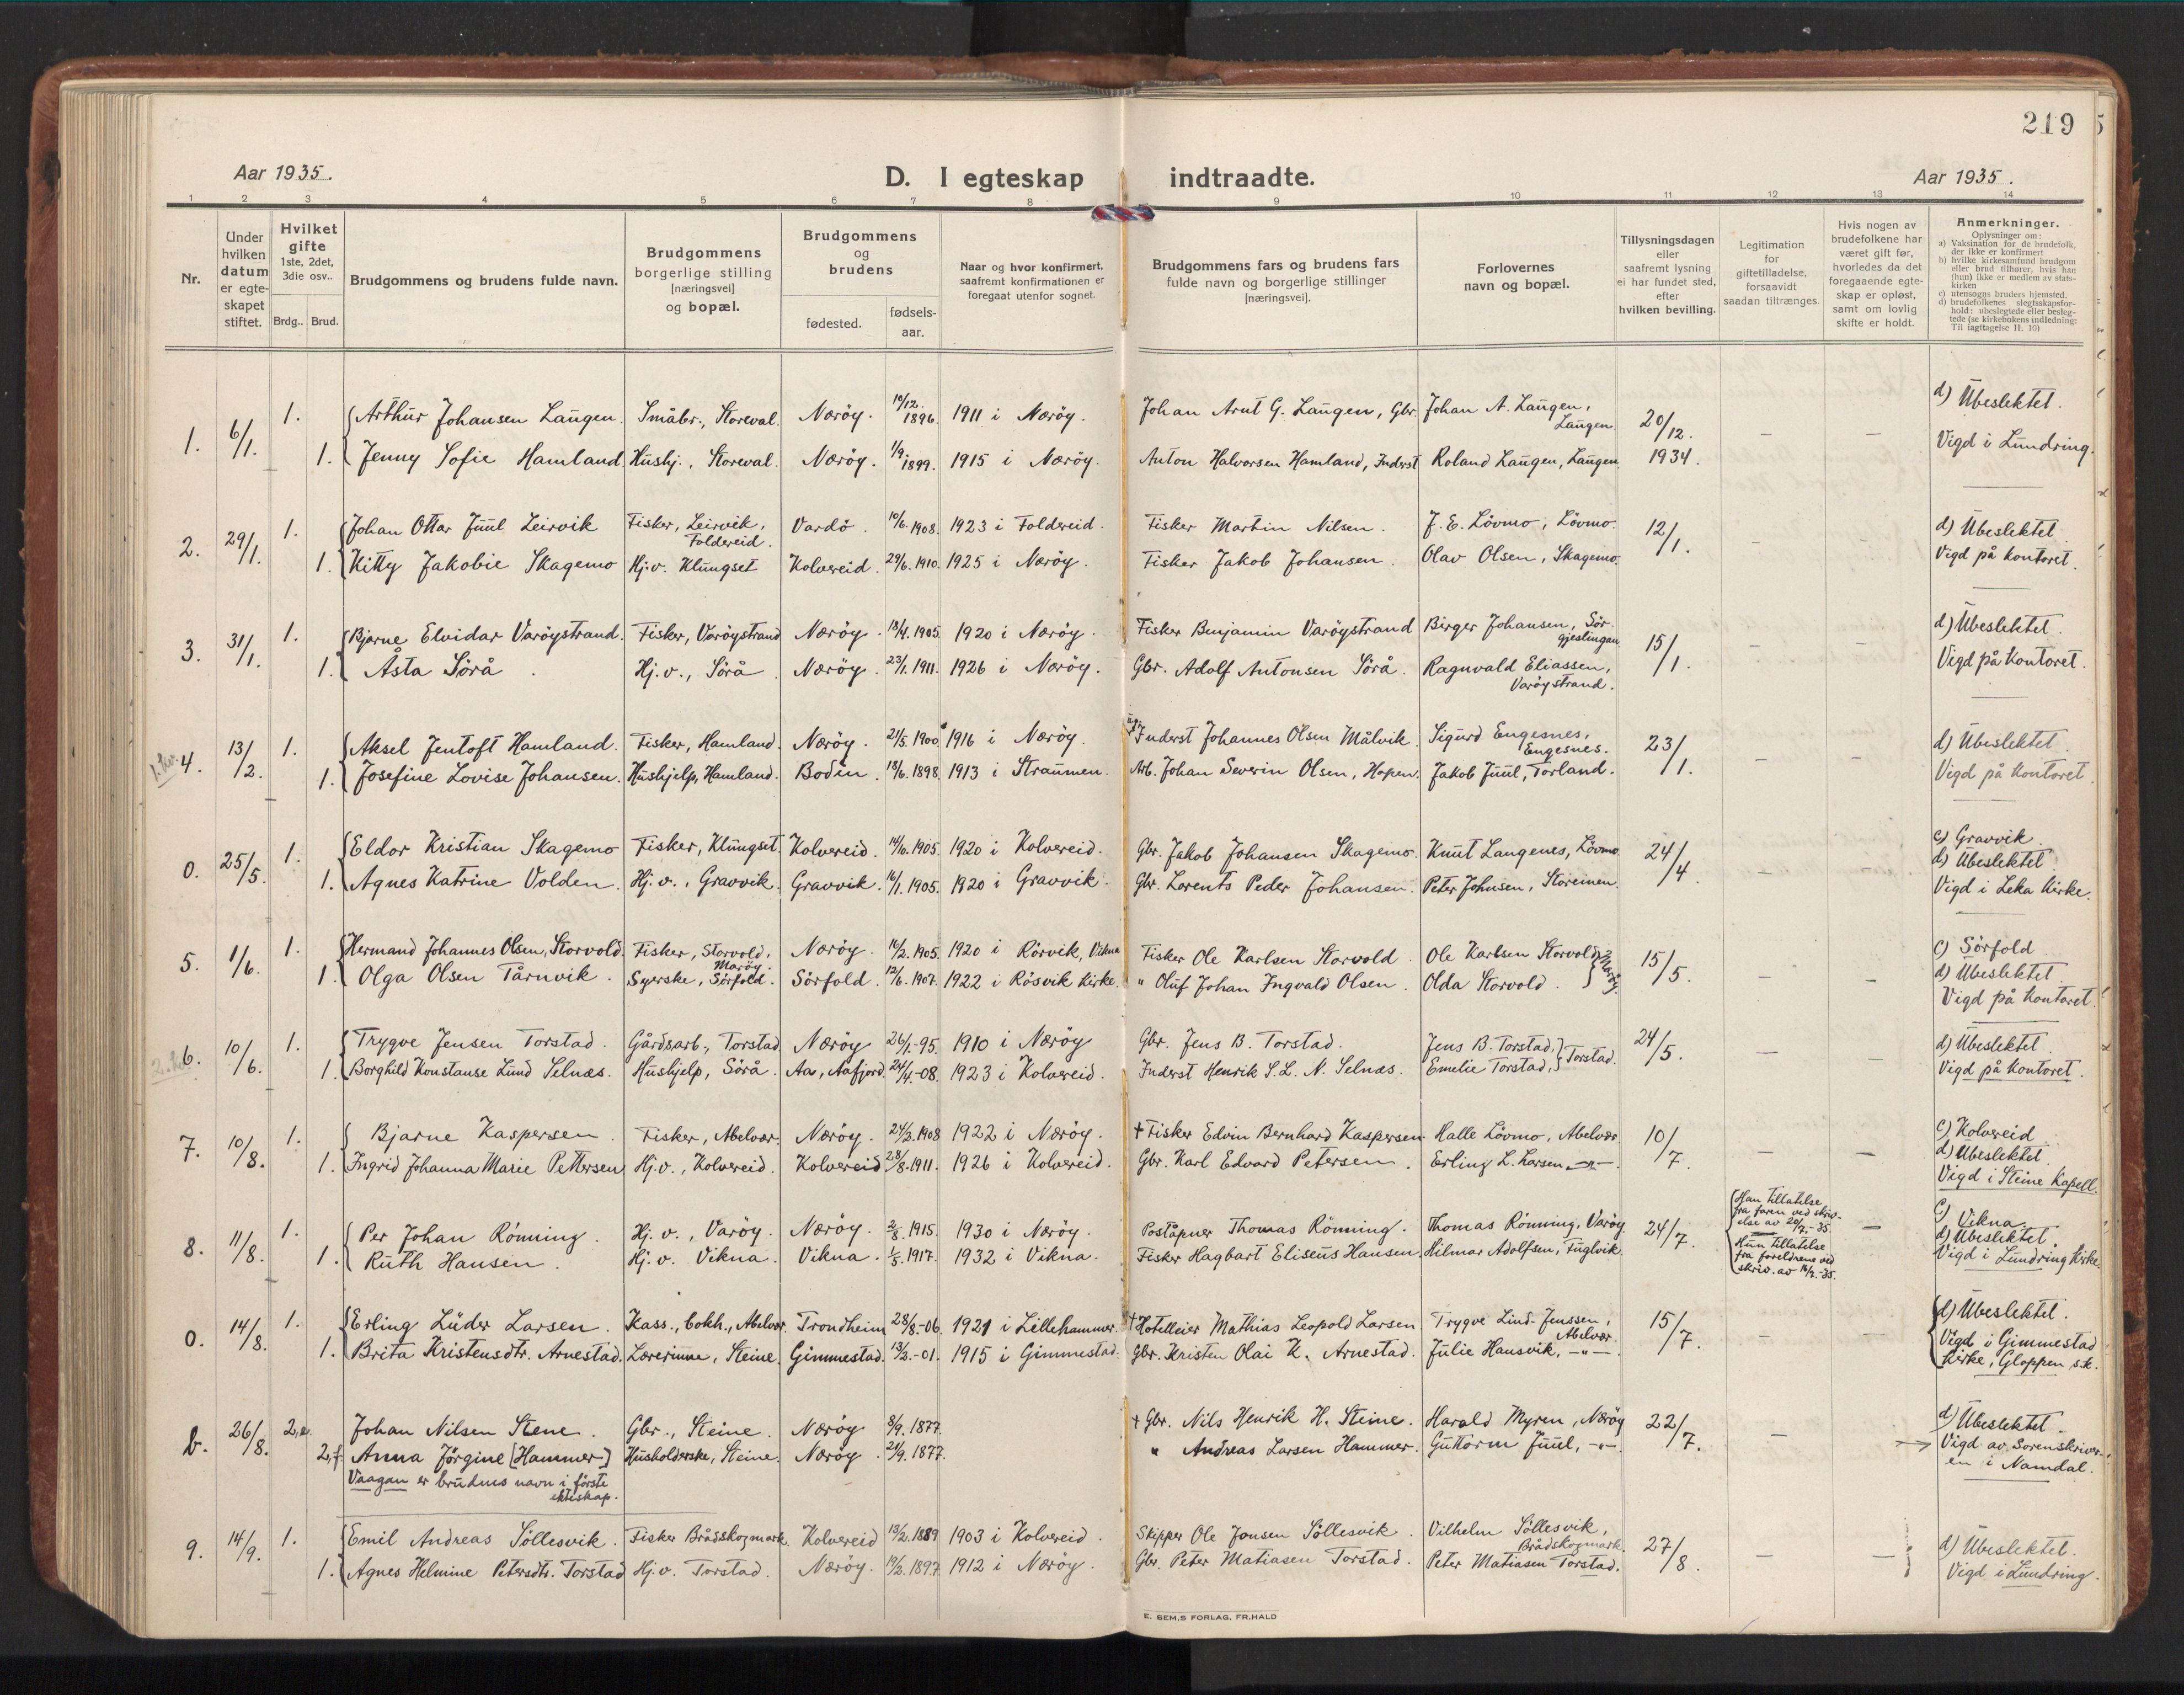 219
Aar 1935.
D. I egteskap indtraadte.
Aar 1935.
1 2 3 4 5 6 7 8 9 10 11 12 13 14
Nr.
Under hvilken datum er egteskapet stiftet.
Hvilket gifte 1ste, 2det, 3die osv..
Brdg.. Brud.
Brudgommens og brudens fulde navn.
Brudgommens borgerlige stilling [næringsvei] og bopæl.
Brudgommens og brudens
fødested.
fødsels-aar.
Naar og hvor konfirmert, saafremt konfirmationen er foregaat utenfor sognet.
Brudgommens fars og brudens fars fulde navn og borgerlige stillinger [næringsvei].
Forlovernes navn og bopæl.
Tillysningsdagen eller saafremt lysning ei har fundet sted, efter hvilken bevilling.
Legitimation for giftetilladelse, forsaavidt saadan tiltrænges.
Hvis nogen av brudefolkene har været gift før, hvorledes da det foregaaende egteskap er opløst, samt om lovlig skifte er holdt.
Anmerkninger.
Oplysninger om:
a) Vaksination for de brudefolk, der ikke er konfirmert
b) hvilke kirkesamfund brudgom eller brud tilhører, hvis han (hun) ikke er medlem av statskirken
c) utensogns bruders hjemsted.
d) brudefolkenes slegtsskapsforhold: ubeslegtede eller beslegtede (se kirkebokens indledning: Til iagttagelse II. 10)
1. 6/1. 1. Arthur Johansen Laugen. Småbr., Storeval. Nærøy. 10/12. 1896. 1911 i Nærøy. Johan Arnt G. Laugen, Gbr. Johan A. Laugen, Laugen. 20/12. 1934. — — d) Ubeslektet.
1. Jenny Sofie Hamland Hushj., Storeval. Nærøy. 1/9 1899. 1915 i Nærøy. Anton Halvorsen Hamland, Inderst Roland Laugen, Laugen. Vigd i Lundring.
2. 29/1. 1. Johan Ottar Juul Leirvik Fisker, Leirvik, Foldereid. Vardø. 10/6. 1908. 1923 i Foldereid. Fisker Martin Nilsen. J. E. Lövmo, Lövmo. 12/1. - - d) Ubeslektet
1. Kitty Jakobie Skagemo Hj.v. Klungset Kolvereid. 29/6. 1910. 1925 i Nærøy. Fisker Jakob Johansen. Olav Olsen, Skagemo. Vigd på kontoret.
3. 31/1. 1. Bjarne Elvidar Varøystrand. Fisker, Varøystrand Nærøy. 13/4. 1905. 1920 i Nærøy. Fisker Benjamin Varøystrand Birger Johansen, Sör-gjeslingan 15/1. - - d) Ubeslektet.
1. Åsta Sörå. Hj.v., Sörå. Nærøy. 23/1. 1911. 1926 i Nærøy. Gbr. Adolf Antonsen Sörå. Ragnvald Eliassen, Varøystrand. Vigd på kontoret.
4. 13/2. 1. Aksel Jentoft Hamland. Fisker, Hamland. Nærøy. 21/5. 1900. 1916 i Nærøy. Inderst Johannes Olsen Målvik. Sigurd Engesnes, Engesnes. 23/1. - - d) Ubeslektet.
1. Josefine Lovise Johansen. Hushjelp, Hamland. Bodin. 18/6. 1898. 1913 i Straumen. Arb. Johan Severin Olsen, Hopen. Jakob Juul, Torland. Vigd på kontoret
0. 25/5. 1. Eldor Kristian Skagemo Fisker, Klungset. Kolvereid. 14/6. 1905. 1920 i Kolvereid. Gbr. Jakob Johansen Skagemo. Knut Langenes, Lövmo 24/4. - - c) Gravvik.
d) Ubeslektet
1. Agnes Katrine Volden. Hj.v., Gravvik. Gravvik. 16/1. 1905. 1920 i Gravvik. Gbr. Lorents Peder Johansen. Peter Johnsen, Storeinen. Vigd i Leka kirke.
5. 1/6. 1. Hermand Johannes Olsen, Storvold. Fisker, Storvold, Marøy. Nærøy. 16/2. 1905. 1920 i Rörvik, Vikna Fisker Ole Karlsen Storvold. Ole Karlsen Storvold Marøy. 15/5. - - c) Sörfold
d) Ubeslektet.
1. Olga Olsen Tårnvik. Syerske, Sörfold. Sörfold. 12/6. 1907. 1922 i Rösvik kirke. " Oluf Johan Ingvald Olsen. Olda Storvold. Vigd på kontoret.
6. 10/6. 1. Trygve Jensen Torstad. Gårdsarb., Torstad Nærøy 26/1.-95. 1910 i Nærøy Gbr. Jens B. Torstad. Jens B. Torstad, Torstad. 24/5. — — d) Ubeslektet
1. Borghild Konstanse Lund Selnæs. Hushjelp, Sörå. Aa, Aafjord. 24/4.-08. 1923 i Kolvereid. Inderst Henrik S.L. N. Selnæs. Emelie Torstad, Vigd på kontoret.
7. 10/8. 1. Bjarne Kaspersen. Fisker, Abelvær. Nærøy. 24/2. 1908 1922 i Nærøy. † Fisker Edvin Bernhard Kaspersen Halle Lövmo, Abelvær. 10/7. - - c) Kolvereid
d) Ubeslektet
1. Ingrid Johanna Marie Pettersen Hj.v., Kolvereid. Kolvereid 28/8. 1911. 1926 i Kolvereid. Gbr. Karl Edvard Petersen. Erling L. Larsen, —"—. Vigd i Steine kapell.
8. 11/8. 1. Per Johan Rönning. Hj.v., Varøy. Nærøy. 2/8. 1915. 1930 i Nærøy. Poståpner Thomas Rönning. Thomas Rönning, Varøy 24/7. Han tillatelse fra faren ved skrivelse av 20/7.-35. — c) Vikna.
d) Ubeslektet.
1. Ruth Hansen. Hj.v. Vikna. Vikna. 1/5. 1917. 1932 i Vikna. Fisker Hagbart Eliseus Hansen. Hilmar Adolfsen, Fuglvik. Hun tillatelse fra foreldrene ved skriv. av 16/7.-35. Vigd i Lundring kirke.
0. 14/8. 1. Erling Lüder Larsen. Kass., bokh., Abelvær. Trondheim 28/8.-06. 1921 i Lillehammer. † Hotelleier Mathias Leopold Larsen Trygve Lind-Jenssen, Abelvær. 15/7. - - d) Ubeslektet.
1. Brita Kristensdtr. Arnestad. Lærerinne, Steine. Gimmestad. 13/2.-01. 1915 i Gimmestad. Gbr. Kristen Olai K. Arnestad. Julie Hansvik, —"—. Vigd i Gimmestad kirke, Gloppen s.k.
b. 26/8. 2, e. Johan Nilsen Stene. Gbr., Steine. Nærøy 8/9. 1877. † Gbr. Nils Henrik H. Steine. Harald Myren, Nærøy 22/7. — — d) Ubeslektet.
2, f. Anna Jörgine [Hammer] Husholderske, Steine. Nærøy. 21/9. 1877. " Andreas Larsen Hammer. Guttorm Juul, —"—. Vigd av Sorenskriveren i Namdal.
Vaagan er brudens navn i første ekteskap.
9. 14/9. 1. Emil Andreas Söllesvik. Fisker Brådskogmark. Kolvereid 13/2. 1889 1903 i Kolvereid. Skipper Ole Jonsen Söllesvik. Vilhelm Söllesvik, Brådskogmark. 27/8. — — d) Ubeslektet.
1. Agnes Helmine Petersdtr. Torstad Hj.v. Torstad. Nærøy. 19/2. 1897. 1912 i Nærøy. Gbr. Peter Matiasen Torstad. Peter Matiasen Torstad. Vigd i Lundring.
E. SEM,S FORLAG, FR.HALD